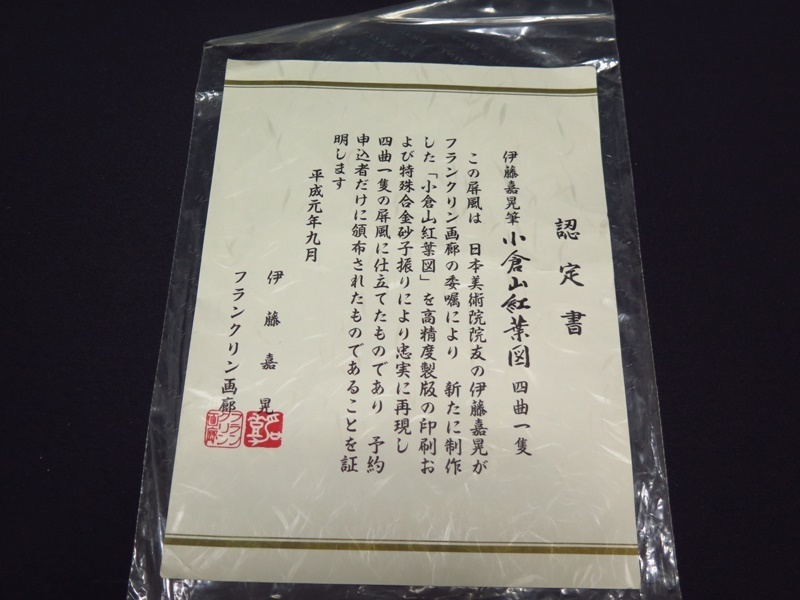 認定書
伊藤嘉晃筆 小倉山紅葉図 四曲一隻
この屏風は 日本美術院院友の伊藤嘉晃が
フランクリン画廊の委嘱により 新たに制作
した「小倉山紅葉図」を高精度製版の印刷お
よび特殊合金砂子振りにより忠実に再現し
四曲一隻の屏風に仕立てたものであり 予約
申込者だけに頒布されたものであることを証
明します
平成元年九月
伊藤嘉晃
フランクリン画廊
フランクリン画廊